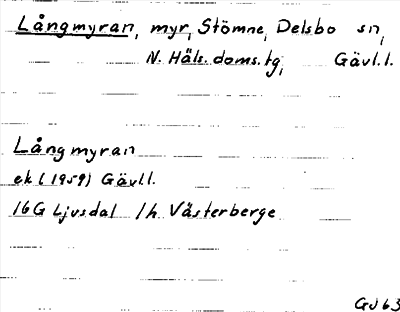 Långmyran, myr, Stömne, Delsbo sn,
N. Häls. doms.tg, Gävl.l.
Långmyran
ek (1959) Gävll.
16G Ljusdal 1h Västerberge
GJ 63